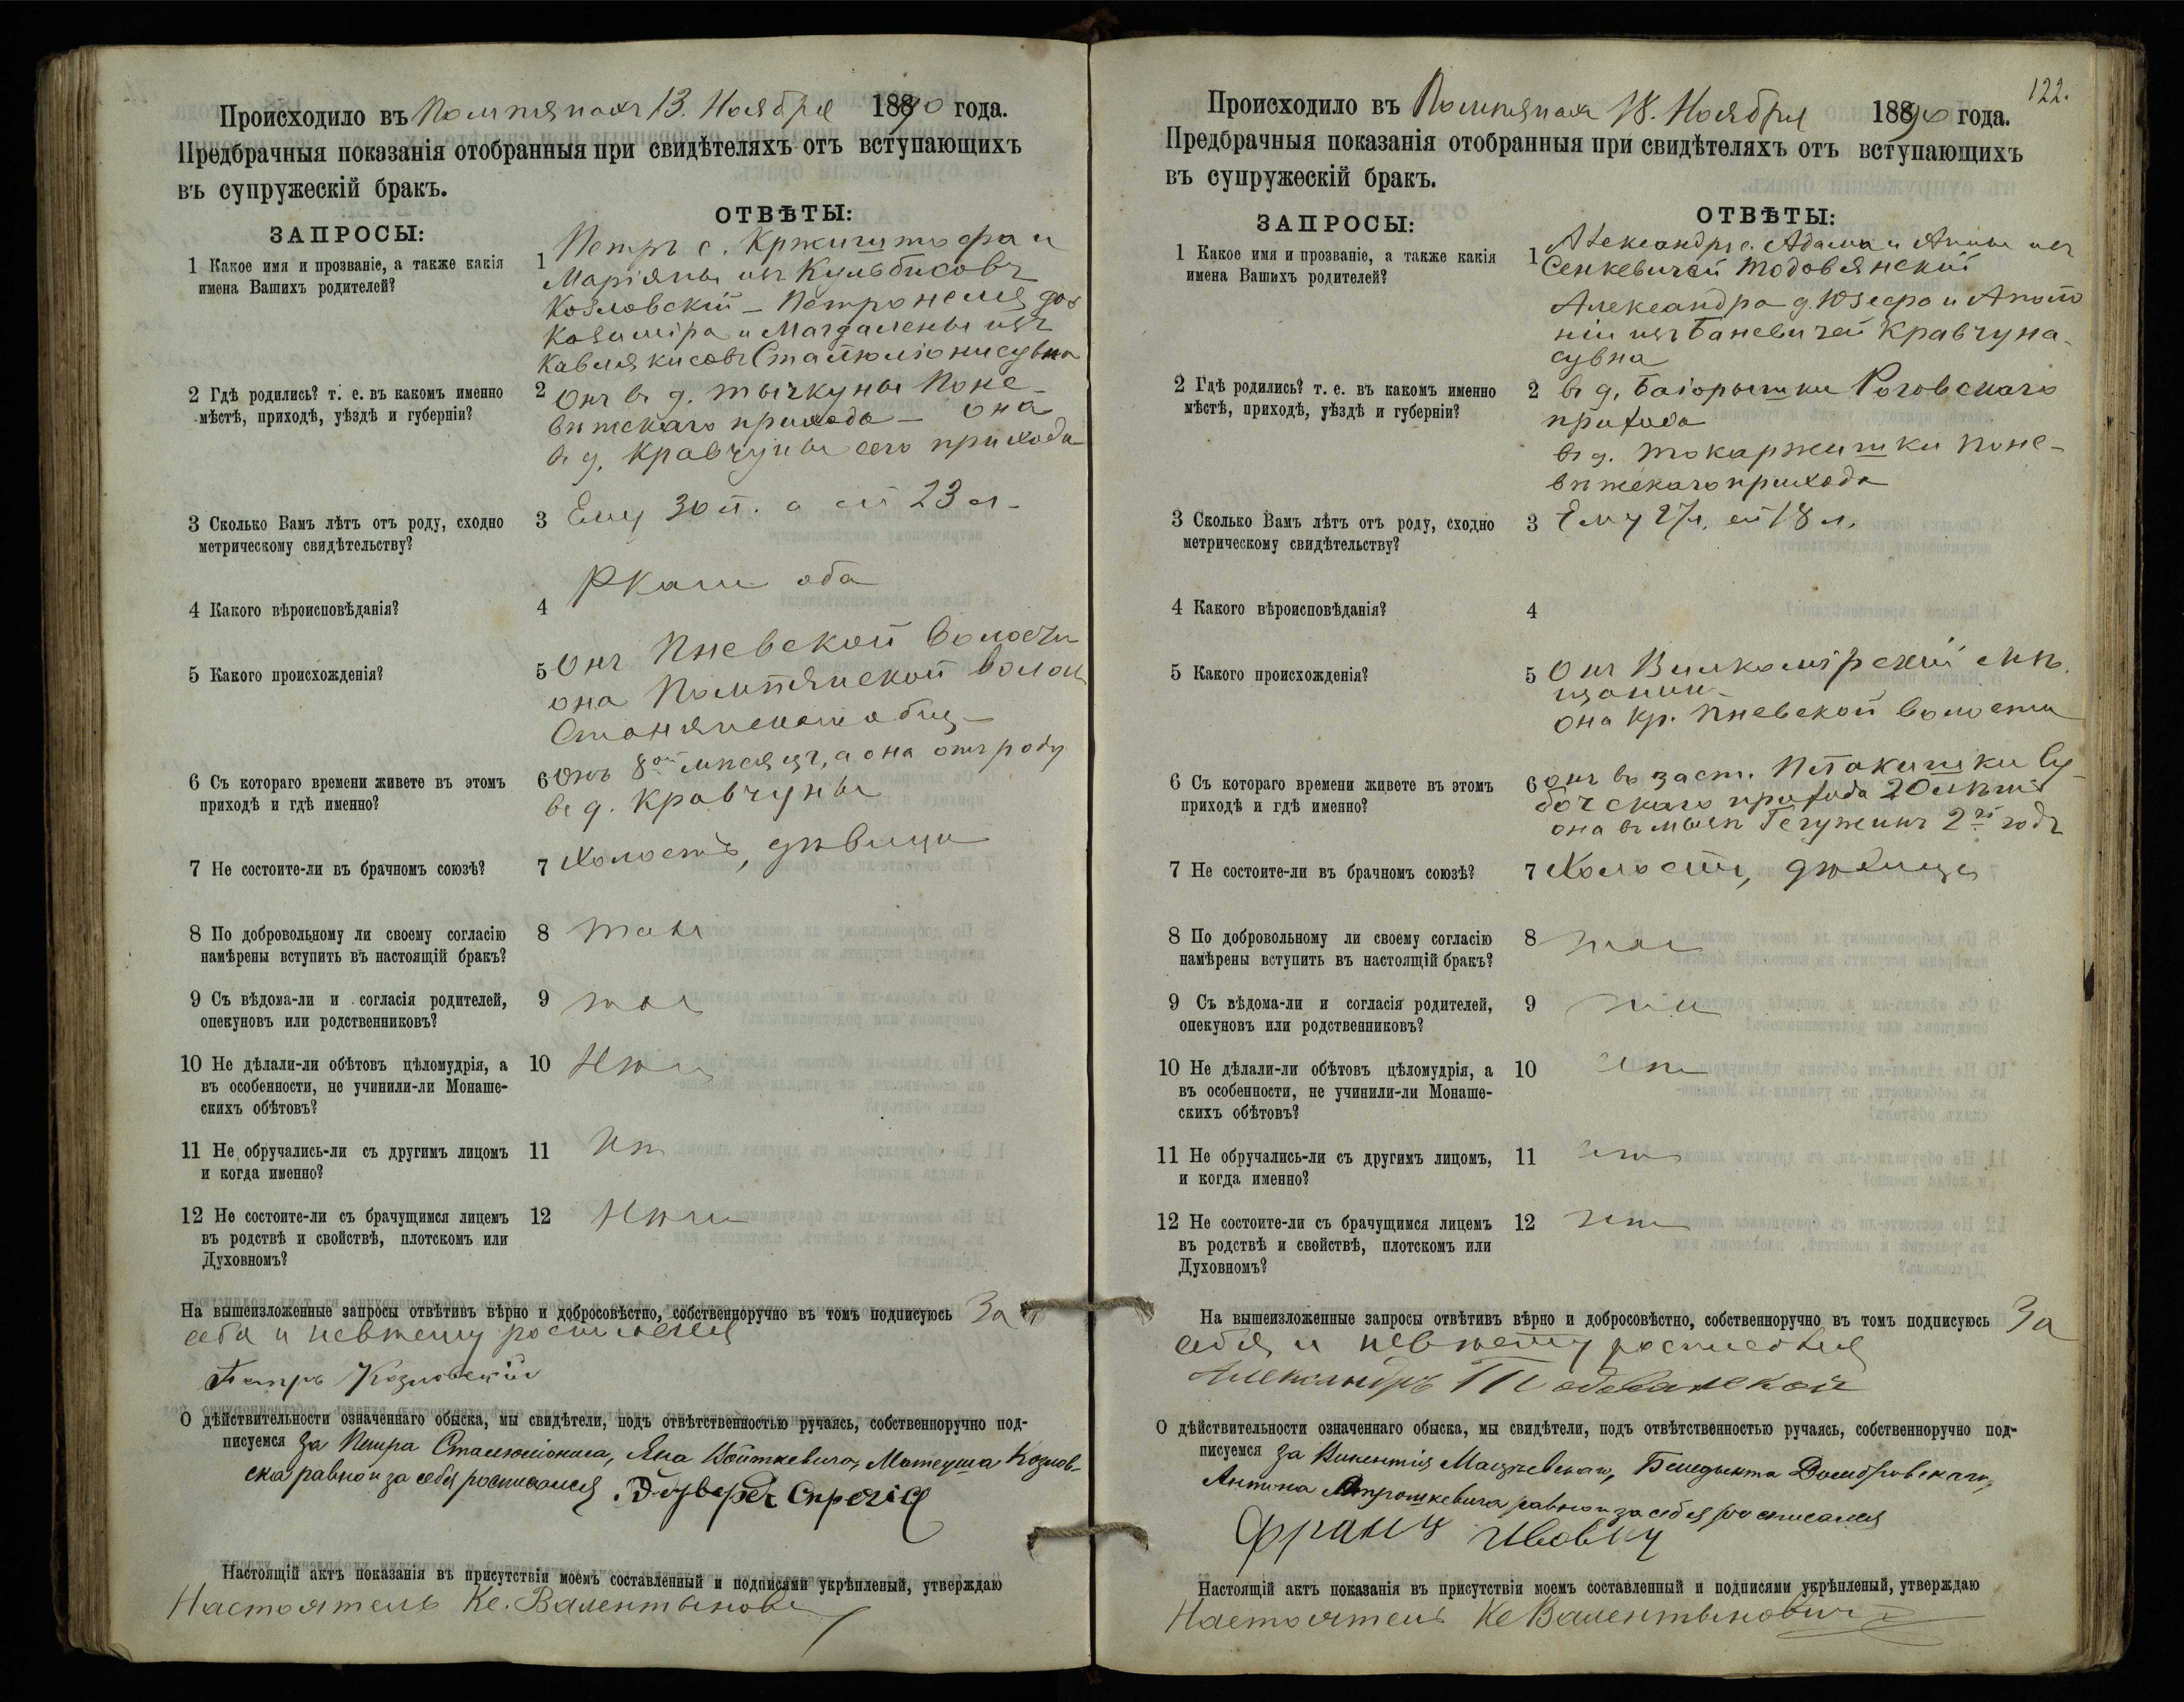 Происходило въ Помпянахъ 13. Ноября 1890 года.
Предбрачныя показанія отобранныя при свидѣтеляхъ отъ вступающихъ
въ супружескій бракъ.
ЗАПРОСЫ:
ОТВѢТЫ:
1 Какое имя и прозваніе, а также какія
имена Вашихъ родителей?
1 Петръ с. Кржиштофа и
Маріяны изъ Кульбисовъ
Козловскій – Петронеля доч
Казиміра и Магдалены изъ
2 Гдѣ родились? т. е. въ какомъ именно
мѣстѣ, приходѣ, уѣздѣ и губерніи?
2 Онъ въ д. Тычкуны Поне-
вѣжскаго прихода – она
въ д. Кравчуны сего прихода
3 Сколько Вамъ лѣтъ отъ роду, сходно
метрическому свидѣтельству?
3 Ему 30 л. а ей 23 л.
4 Какого вѣроисповѣданія?
4 РКат оба
5 Какого происхожденія?
5 Онъ Пневской волости
она Помпянской волос
6 Съ котораго времени живете въ этомъ
приходѣ и гдѣ именно?
6 Онъ 8ой мѣсяцъ, а она отъ роду
въ д. Кравчуны
7 Не состоите-ли въ брачномъ союзѣ?
7 Холостъ, дѣвица
8 По добровольному ли своему согласію
намѣрены вступить въ настоящій бракъ?
8 такъ
9 Съ вѣдома-ли и согласія родителей,
опекуновъ или родственниковъ?
9 так
10 Не дѣлали-ли обѣтовъ цѣломудрія, а
въ особенности, не учинили-ли Монаше-
скихъ обѣтовъ?
10 Нѣтъ
11 Не обручались-ли съ другимъ лицомъ
и когда именно?
11 Нѣт
12 Не состоите-ли съ брачущимся лицемъ
въ родствѣ и свойствѣ, плотскомъ или
Духовномъ?
12 Нѣтъ
На вышеизложенные запросы отвѣтивъ вѣрно и добросовѣстно, собственноручно въ томъ подписуюсь За
себя и невѣсту росписался
Петръ Козловскій
О дѣйствительности означеннаго обыска, мы свидѣтели, подъ отвѣтственностью ручаясь, собственноручно под-
писуемся За Петра Сталюліониса, Яна Войткевича, Матеуша Козлов-
ска равно и за себя росписался
Настоящій актъ показанія въ присутствіи моемъ составленный и подписями укрѣпленый, утверждаю
Настоятель Кс. Валентынович
122.
Происходило въ Помпянахъ 18. Ноября 1890 года.
Предбрачныя показанія отобранныя при свидѣтеляхъ отъ вступающихъ
въ супружескій бракъ.
ЗАПРОСЫ:
ОТВѢТЫ:
1 Какое имя и прозваніе, а также какія
имена Вашихъ родителей?
1 Александръ с. Адама и Анны изъ
Сенкевичей Тодовянскій
Александра д. Юзефа и Анто
ніи изъ Баневичей Кравчуна-
сувна
2 Гдѣ родились? т. е. въ какомъ именно
мѣстѣ, приходѣ, уѣздѣ и губерніи?
2 въ д. Баіорышки Роговскаго
прихода
въ д. Токаржишки Поне-
вѣжскаго прихода
3 Сколько Вамъ лѣтъ отъ роду, сходно
метрическому свидѣтельству?
3 Ему 27 л. ей 18 л.
4 Какого вѣроисповѣданія?
4
5 Какого происхожденія?
5 Онъ Вилкомірскій мѣ-
щанин
она кр. Пневской волости
6 Съ котораго времени живете въ этомъ
приходѣ и гдѣ именно?
6 онъ въ заст. Птакишки Су-
бочскаго прихода 20 лѣтъ
она въ 2й годъ
7 Не состоите-ли въ брачномъ союзѣ?
7 Холостъ, дѣвица
8 По добровольному ли своему согласію
намѣрены вступить въ настоящій бракъ?
8 так
9 Съ вѣдома-ли и согласія родителей,
опекуновъ или родственниковъ?
9 так
10 Не дѣлали-ли обѣтовъ цѣломудрія, а
въ особенности, не учинили-ли Монаше-
скихъ обѣтовъ?
10 нѣт
11 Не обручались-ли съ другимъ лицомъ,
и когда именно?
11 нѣт
12 Не состоите-ли съ брачущимся лицемъ
въ родствѣ и свойствѣ, плотскомъ или
Духовномъ?
12 нѣт
На вышеизложенные запросы отвѣтивъ вѣрно и добросовѣстно, собственноручно въ томъ подписуюсь За
себя и невѣсту росписался
Александръ Тодовянской
О дѣйствительности означеннаго обыска, мы свидѣтели, подъ отвѣтственностью ручаясь, собственноручно под-
писуемся За Викентія Бенедыкта Домбровскаго,
Антона равно и за себя росписался
Францъ
Настоящій актъ показанія въ присутствіи моемъ составленный и подписями укрѣпленый, утверждаю
Настоятель Кс Валентынович